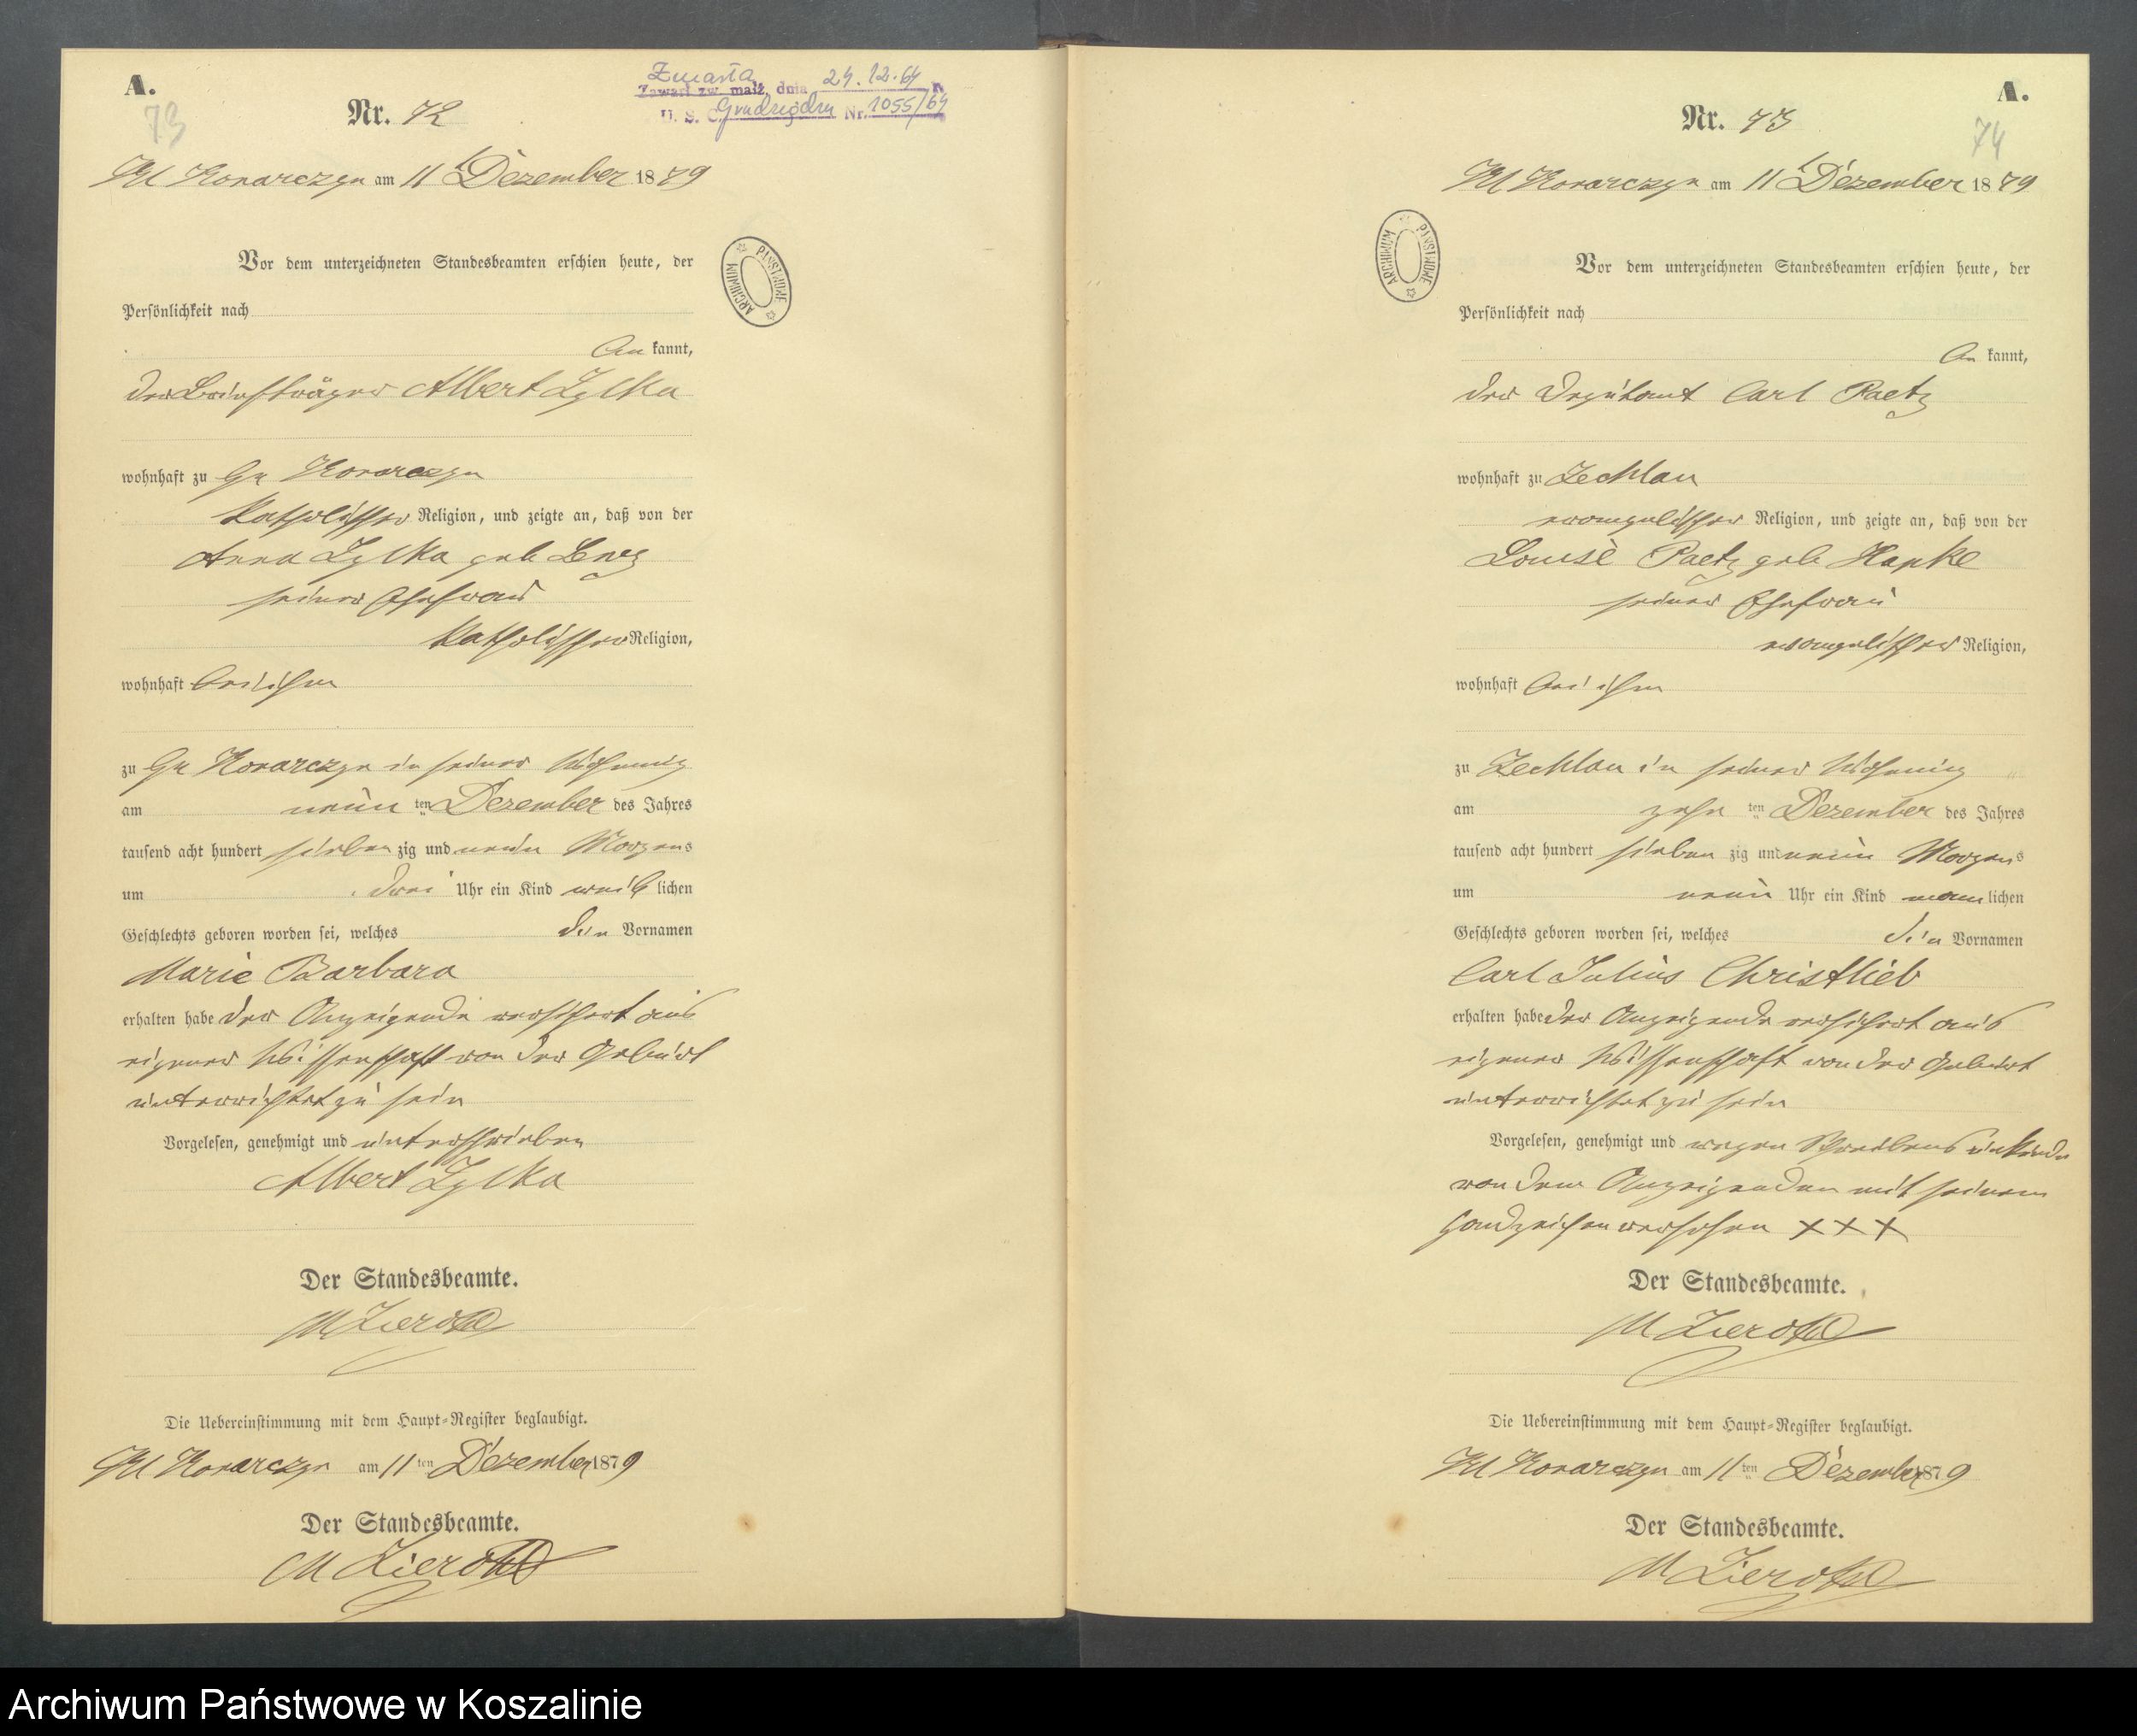 A.
73
Nr. 72
Zmarła
Zawarł zw. małż. dnia 24.12.64 r.
U. S. C. Grudziądzu Nr. 1055/64
Kl Konarczyn am 11 t Dezember 1879
Vor dem unterzeichneten Standesbeamten erschien heute, der
Persönlichkeit nach
ARCHIWUM PAŃSTWOWE
be kannt,
der Briefträger Albert Zylka
wohnhaft zu Gr Konarczyn
katholischer Religion, und zeigte an, daß von der
Anna Zylka geb
seiner Ehefrau
katholischer Religion,
wohnhaft bei ihm
zu Gr Konarczyn in seiner Wohnung
am neun ten Dezember des Jahres
tausend acht hundert sieben zig und neun Morgens
um drei Uhr ein Kind weib lichen
Geschlechts geboren worden sei, welches den Vornamen
Marie Barbara
erhalten habe der Anzeigende versichert aus
eigener Wissenschaft von der Geburt
unterrichtet zu sein
Vorgelesen, genehmigt und unterschrieben
Albert Zylka
Der Standesbeamte.
M
Die Uebereinstimmung mit dem Haupt=Register beglaubigt.
Kl Konarczyn am 11 ten Dezember 1879
Der Standesbeamte.
M
A.
74
Nr. 73
Kl Konarczyn am 11 t Dezember 1879
ARCHIWUM PAŃSTWOWE
Vor dem unterzeichneten Standesbeamten erschien heute, der
Persönlichkeit nach
be kannt,
der Deputant Carl Paetz
wohnhaft zu Zechlau
evangelischer Religion, und zeigte an, daß von der
Louise Paetz geb Hapke
seiner Ehefrau
evangelischer Religion,
wohnhaft bei ihm
zu Zechlau in seiner Wohnung
am zehn ten Dezember des Jahres
tausend acht hundert sieben zig und neun Morgens
um neun Uhr ein Kind mann lichen
Geschlechts geboren worden sei, welches den Vornamen
Carl Julius Christlieb
erhalten habe der Anzeigende versichert aus
eigener Wissenschaft von der Geburt
unterrichtet zu sein
Vorgelesen, genehmigt und wegen Schreibens unkunde
von dem Anzeigenden mit seinem
Handzeichen versehen XXX
Der Standesbeamte.
M
Die Uebereinstimmung mit dem Haupt=Register beglaubigt.
Kl Konarczyn am 11 ten Dezember 1879
Der Standesbeamte.
M
Archiwum Państwowe w Koszalinie